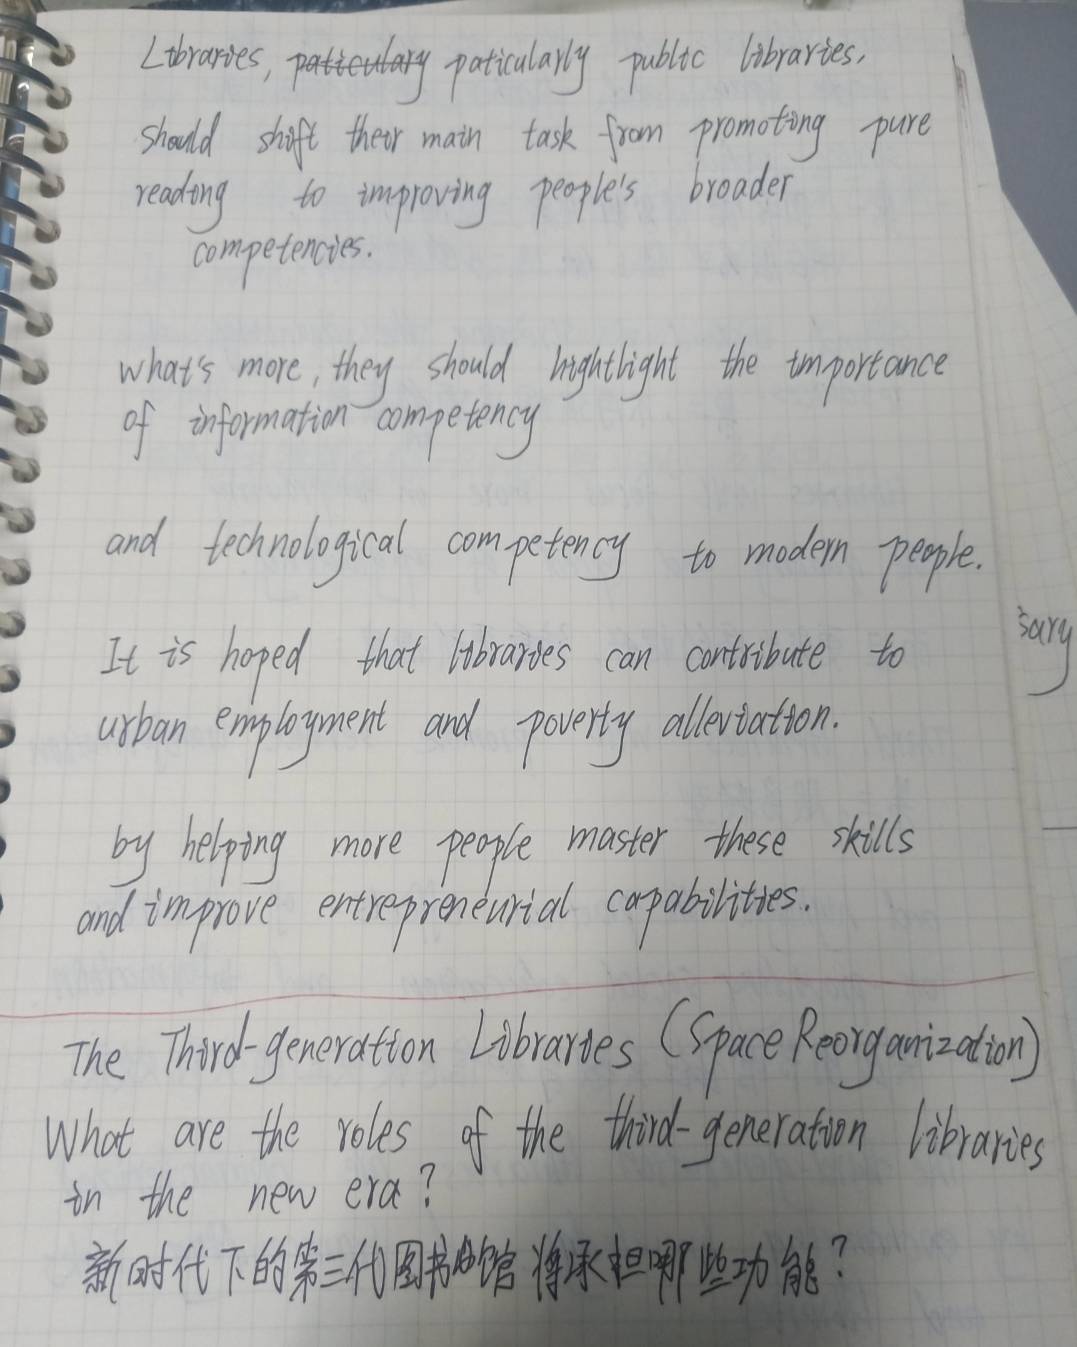 Libraries, paticulary paticularly public libraries,
should shift their main task from promoting pure
reading to improving people's broader
competencies.
what's more, they should hightlight the importance
of information competency
and technological competency to modern people.
It is hoped that libraries can contribute to
urban employment and poverty alleviation.
by helping more people master these skills
and improve entrepreneurial capabilities.
The Third-generation Libraries (Space Reorganization)
What are the roles of the third-generation libraries
in the new era?
新时代下的第三代图书馆将承担哪些功能?
sary